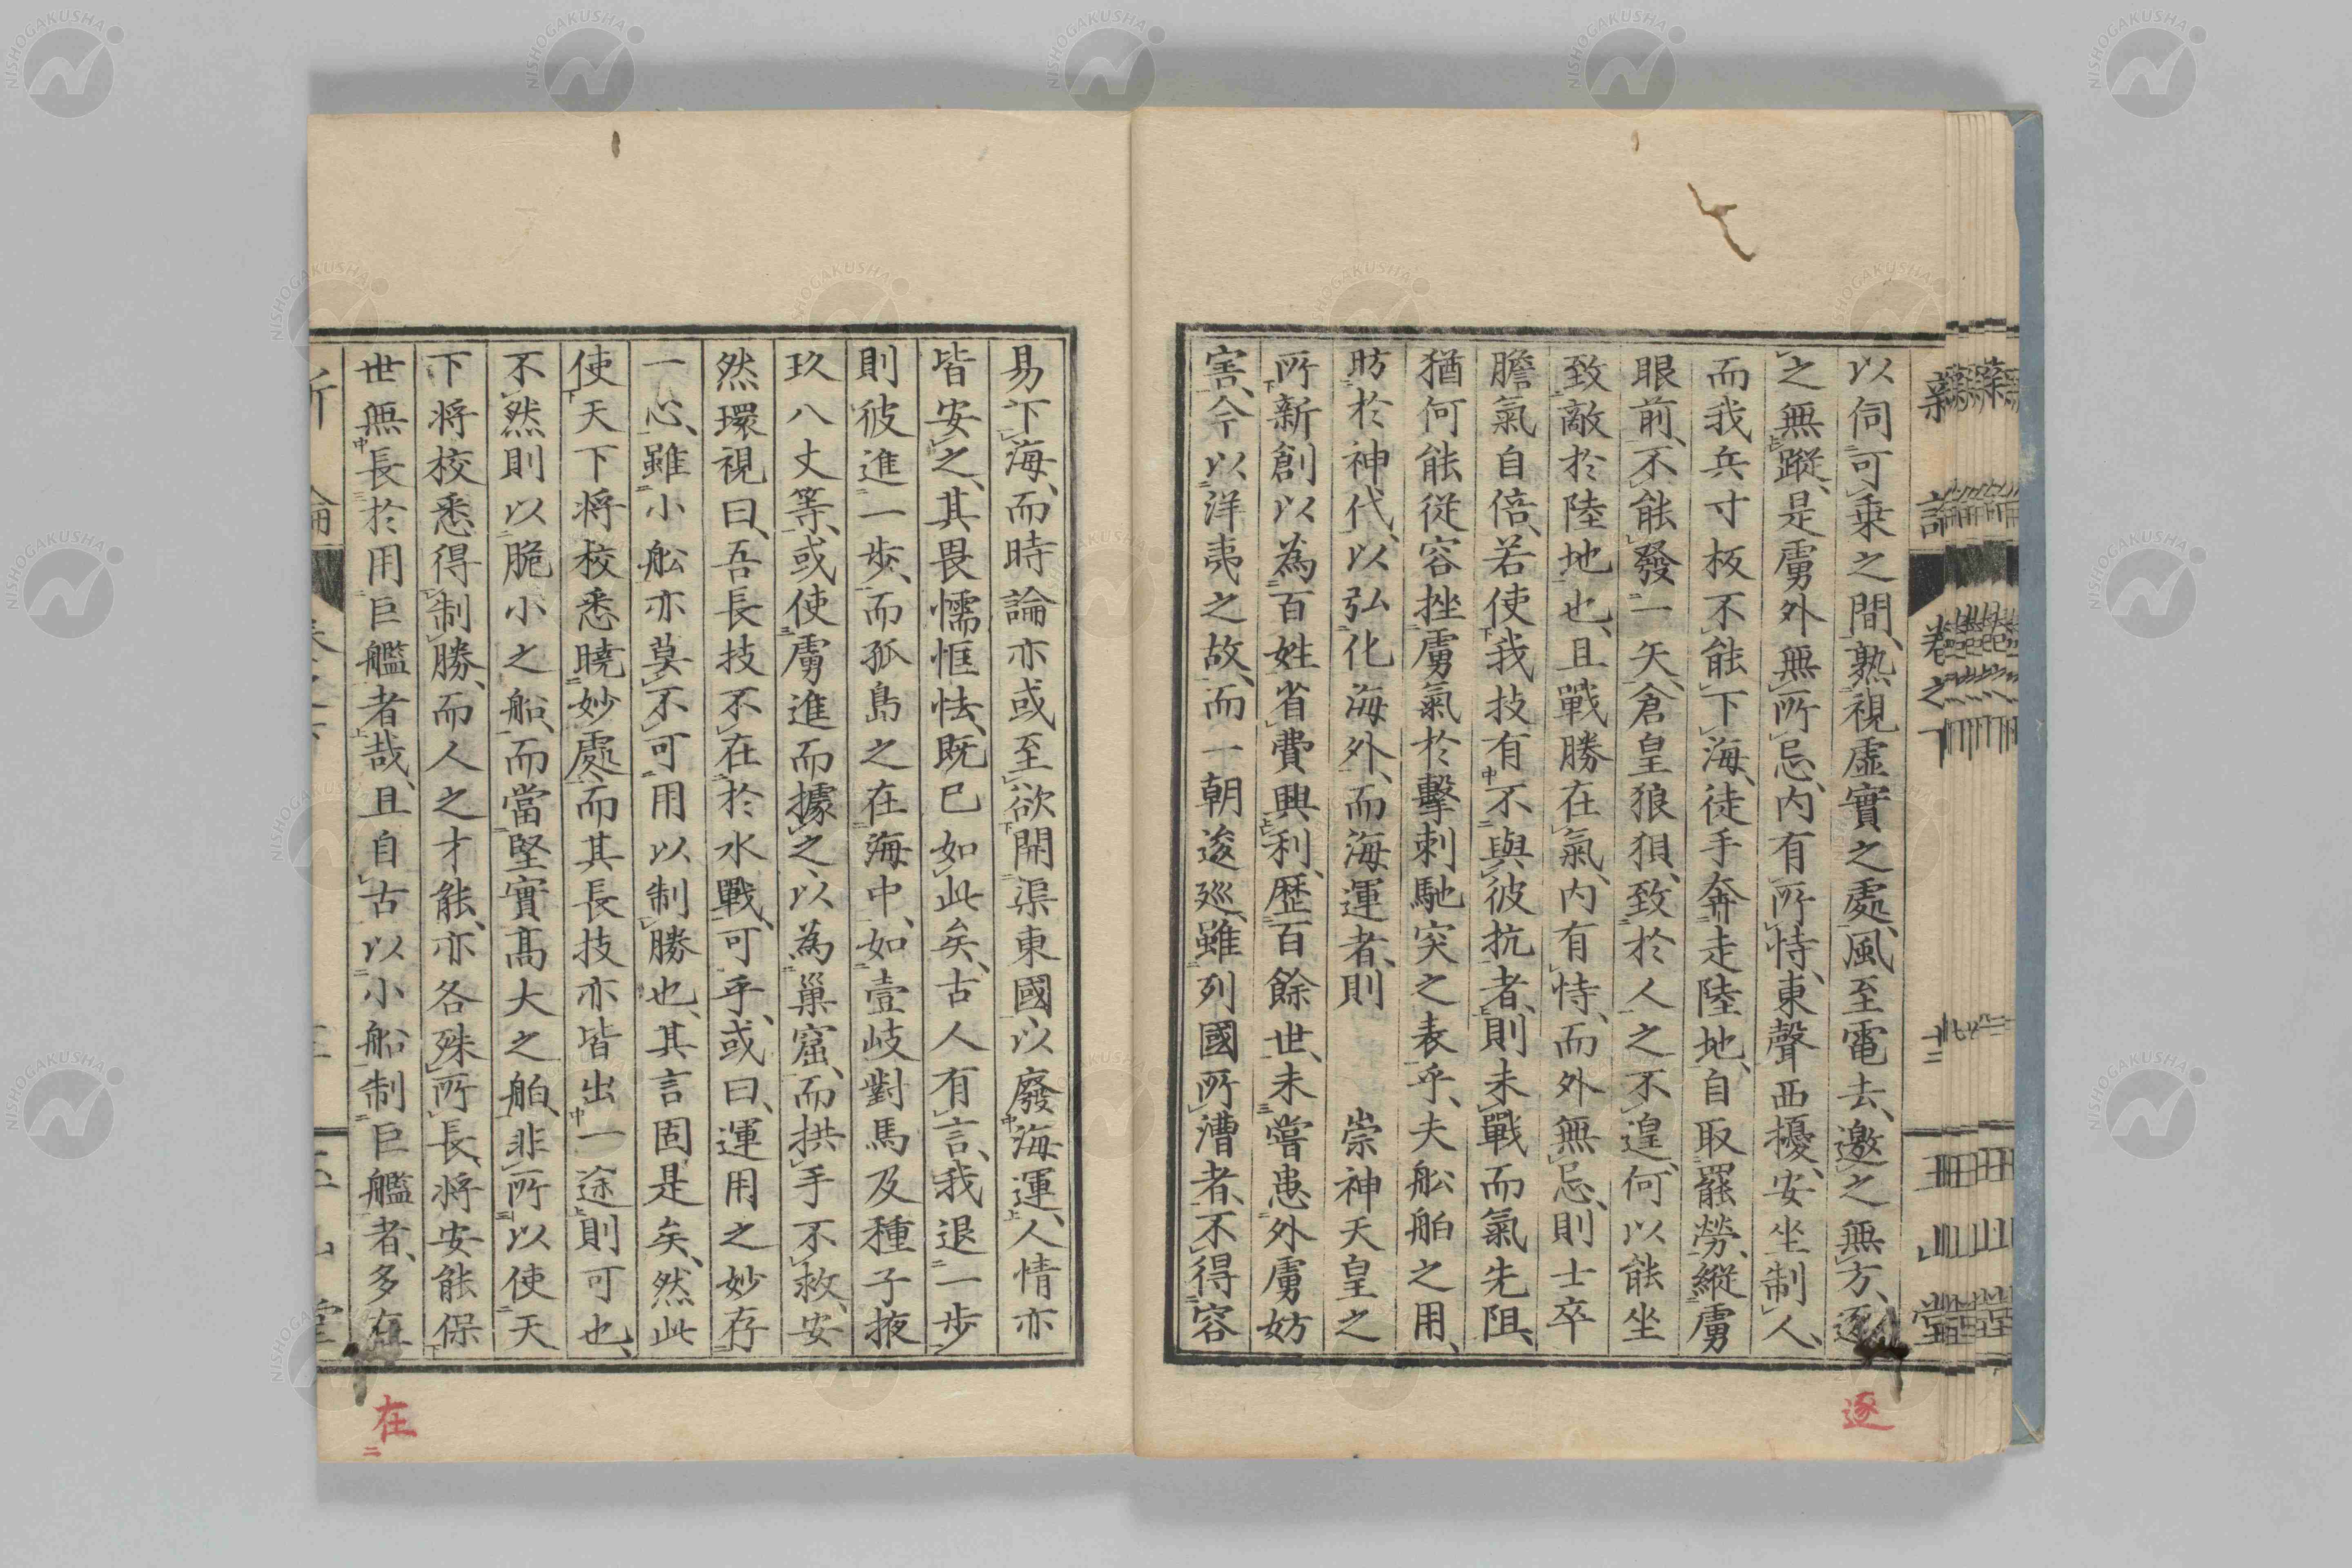 新論 卷之下 十二 玉山堂
以伺可乘之間、熟視虛實之處、風至電去、邀之無方、逐
之無蹤、是虜外無所忌、内有所恃、東聲西擾、安坐制人、
而我兵寸板不能下海、徒手奔走陸地、自取罷勞、縱虜
眼前、不能發一矢、倉皇狼狽、致於人之不遑、何以能坐
致敵於陸地也、且戰勝在氣、内有恃、而外無忌、則士卒
膽氣自倍、若使我技有不與彼抗者、則未戰而氣先阻、
猶何能從容挫虜氣於擊刺馳突之表乎、夫舩舶之用、
昉於神代、以弘化海外、而海運者、則 崇神天皇之
所新創以為百姓省費興利、歷百餘世、未嘗患外虜妨
害、今以洋夷之故、而一朝逡巡、雖列國所漕者、不得容
逐
易下海、而時論亦或至欲開渠東國以廢海運、人情亦
皆安之、其畏懦恇怯、既已如此矣、古人有言、我退一步
則彼進一步、而孤島之在海中、如壹岐對馬及種子掖
玖八丈等、或使虜進而據之、以為巢窟、而拱手不救、安
然環視曰、吾長技不在於水戰、可乎、或曰、運用之妙存
一心、雖小舩亦莫不可用以制勝也、其言固是矣、然此
使天下將校悉曉妙處、而其長技亦皆出一途則可也、
不然則以脆小之船、而當堅實高大之舶、非所以使天
下將校悉得制勝、而人之才能、亦各殊所長、將安能保
世無長於用巨艦者哉、且自古以小船制巨艦者、多在
在
NISHOGAKUSHA